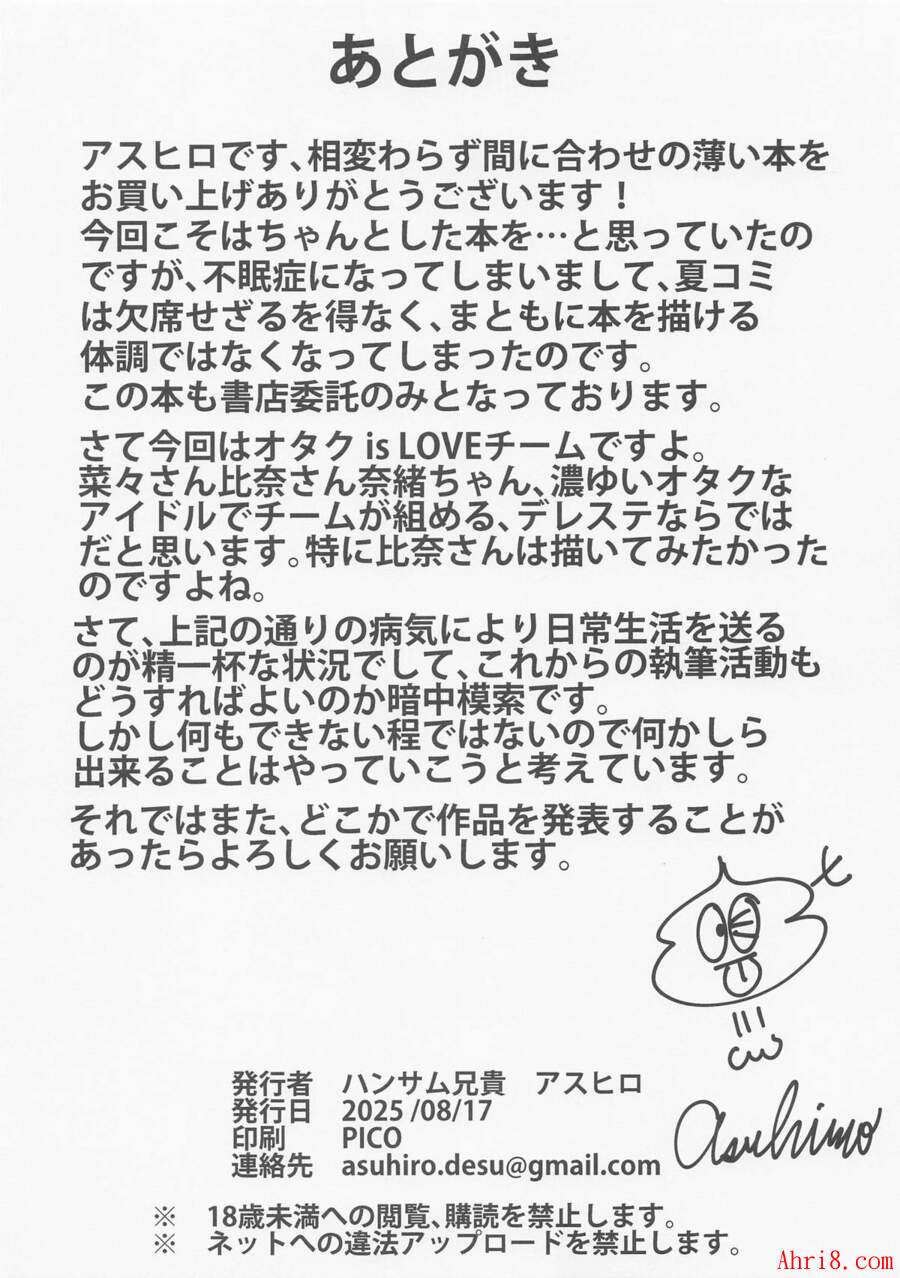 あとがき
アスヒロです、相変わらず間に合わせの薄い本を
お買い上げありがとうございます！
今回こそはちゃんとした本を…と思っていたの
ですが、不眠症になってしまいまして、夏コミ
は欠席せざるを得なく、まともに本を描ける
体調ではなくなってしまったのです。
この本も書店委託のみとなっております。
さて今回はオタク is LOVEチームですよ。
菜々さん比奈さん奈緒ちゃん、濃ゆいオタクな
アイドルでチームが組める、デレステならでは
だと思います。特に比奈さんは描いてみたかった
のですよね。
さて、上記の通りの病気により日常生活を送る
のが精一杯な状況でして、これからの執筆活動も
どうすればよいのか暗中模索です。
しかし何もできない程ではないので何かしら
出来ることはやっていこうと考えています。
それではまた、どこかで作品を発表することが
あったらよろしくお願いします。
発行者　ハンサム兄貴　アスヒロ
発行日　2025 /08/17
印刷　PICO
連絡先　asuhiro.desu@gmail.com
Asuhiro
※　18歳未満への閲覧、購読を禁止します。
※　ネットへの違法アップロードを禁止します。
Ahri8.com